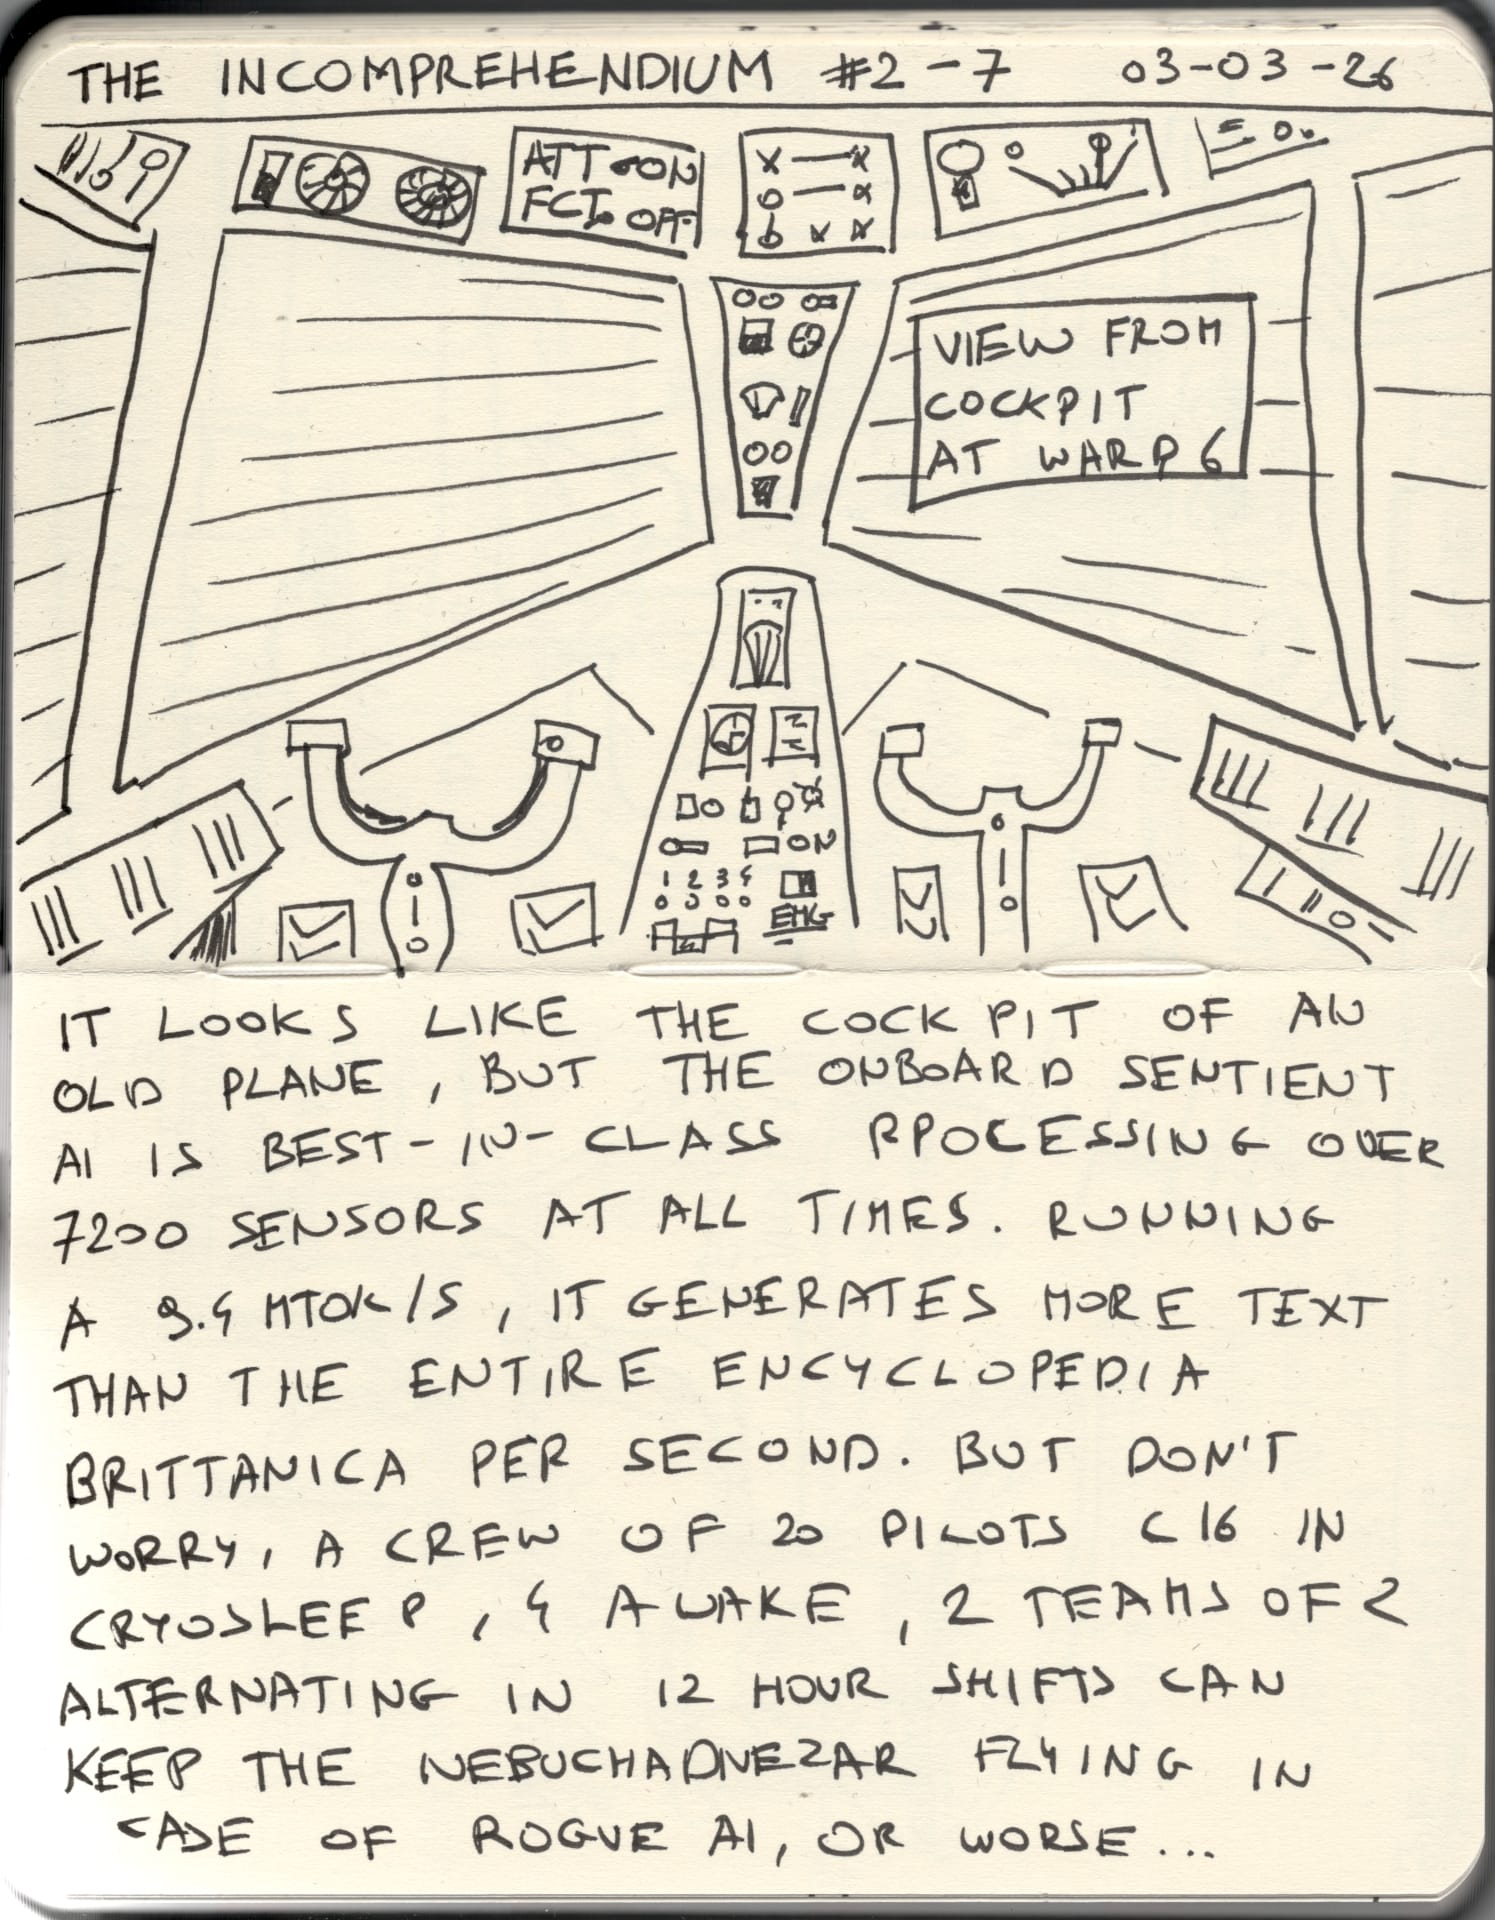 THE INCOMPREHENDIUM #2-7 03-03-26
ATT ON
FCT. OFF
VIEW FROM
COCKPIT
AT WARP 6
ON
1 2 3 4
EMG
IT LOOKS LIKE THE COCKPIT OF AN
OLD PLANE, BUT THE ONBOARD SENTIENT
AI IS BEST-IN-CLASS RPOCESSING OVER
7200 SENSORS AT ALL TIMES. RUNNING
A 9.4 MTOK/S, IT GENERATES MORE TEXT
THAN THE ENTIRE ENCYCLOPEDIA
BRITTANICA PER SECOND. BUT DON'T
WORRY, A CREW OF 20 PILOTS (16 IN
CRYOSLEEP, 4 AWAKE, 2 TEAMS OF 2
ALTERNATING IN 12 HOUR SHIFTS CAN
KEEP THE NEBUCHADNEZAR FLYING IN
CASE OF ROGUE AI, OR WORSE...